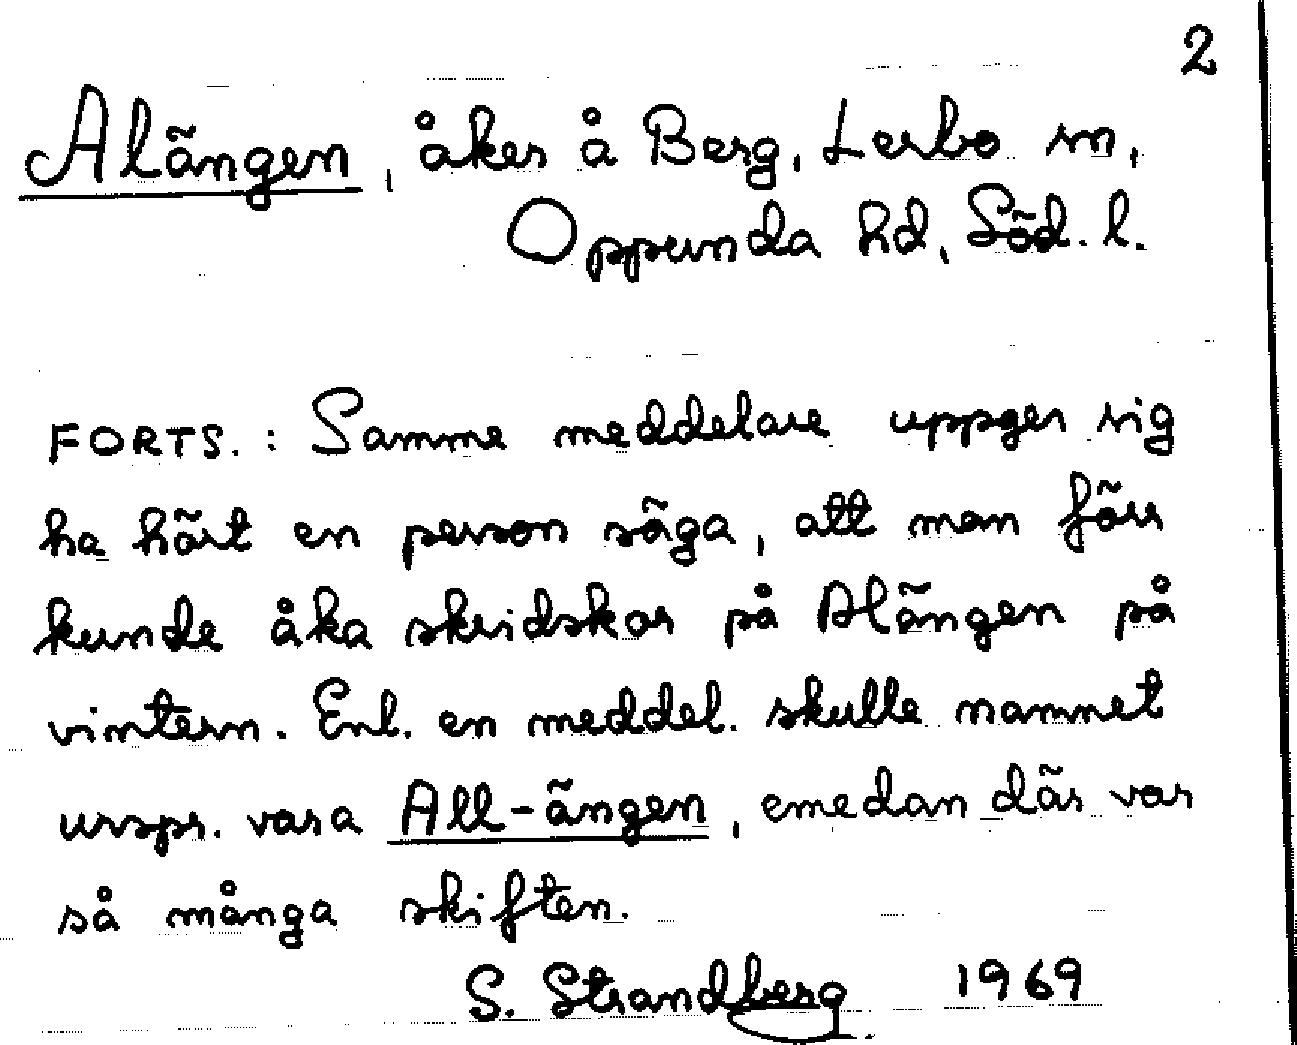 2
Alängen, åker å Berg, Lerbo sn,
Oppunda hd, Söd. l.
FORTS.: Samme meddelare uppger sig
ha hört en person säga, att man förr
kunde åka skridskor på Alängen på
vintern. Enl. en meddel. skulle namnet
urspr. vara All-ängen, emedan där var
så många skiften.
S. Strandberg 1969